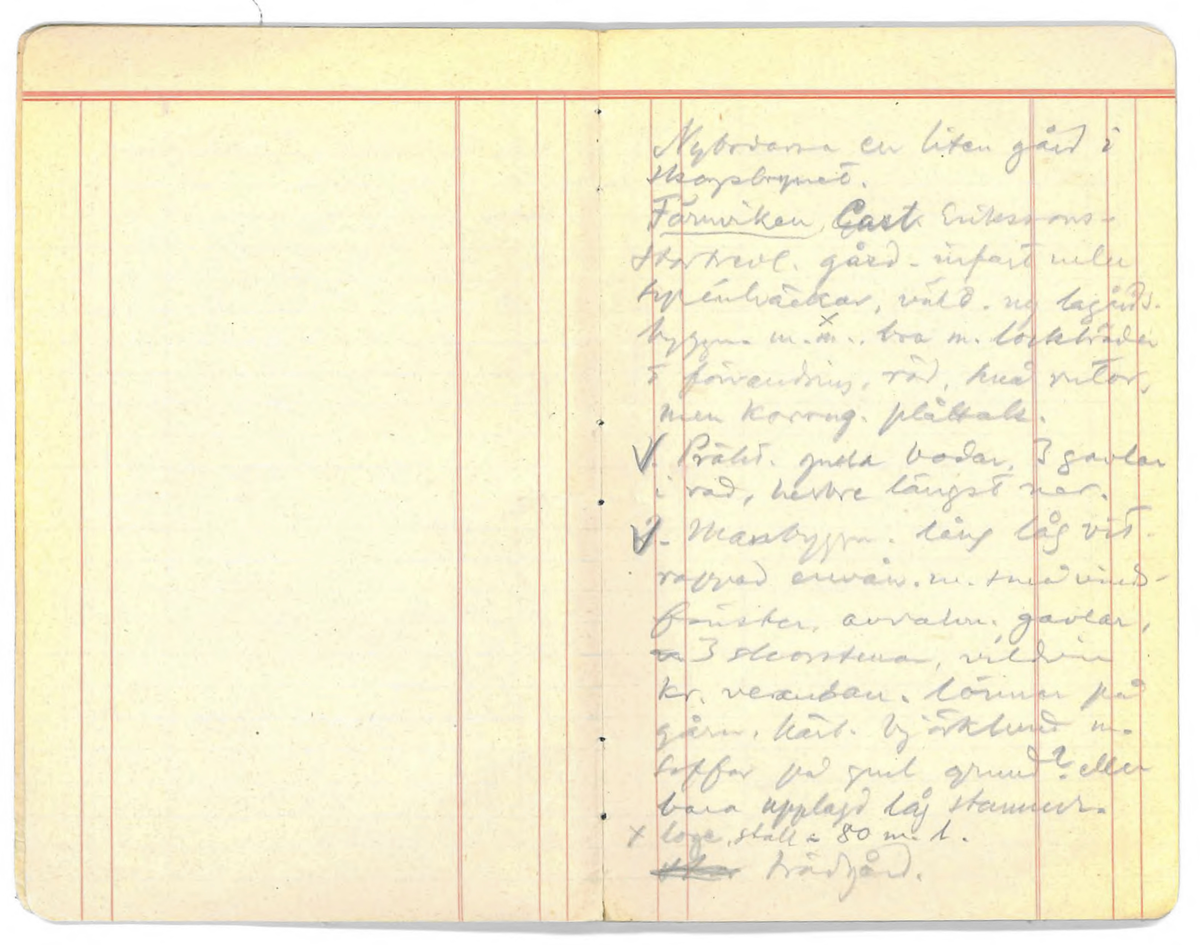 Nybodarna en liten gård i
skogsbrynet.
Färnviken, Erikssons-
gård - infart mellan
syrénhäckar, ny lagårds-
byggn. m.m., bra m. lockbräder
i förvandring, röd, små rutor,
men korrug. plåttak.
V. Präkt. gamla bodar, 3 gavlar
i rad, härbre längst ner.
V. Manbyggn. lång låg vit-
rappad envån. m. små vinds-
fönster, avvalm. gavlar,
3 skorstenar, vildvin
kr. verandan. Lönnar på
gårn. björklund m.
soffor på grund? eller
bara upplagd låg stenmur.
x loge, stall 80 m. l.
trädgård.